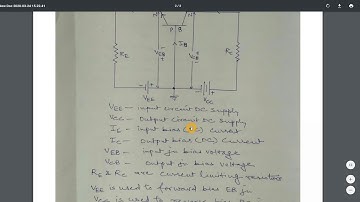 2020-03-24 15:23:41
2 / 3
N N
P B
RE VEB IB VCB RC
VEE VCC
VEE — input circuit DC Supply
VCC — Output Circuit DC Supply
IE — Input bias (DC) current
IC — Output bias (DC) Current
VEB — input jn bias voltage
VCB — Output jn bias voltage
RE & RC are current limiting resistors
VEE is used to forward bias EB jn
VCC is used to reverse bias